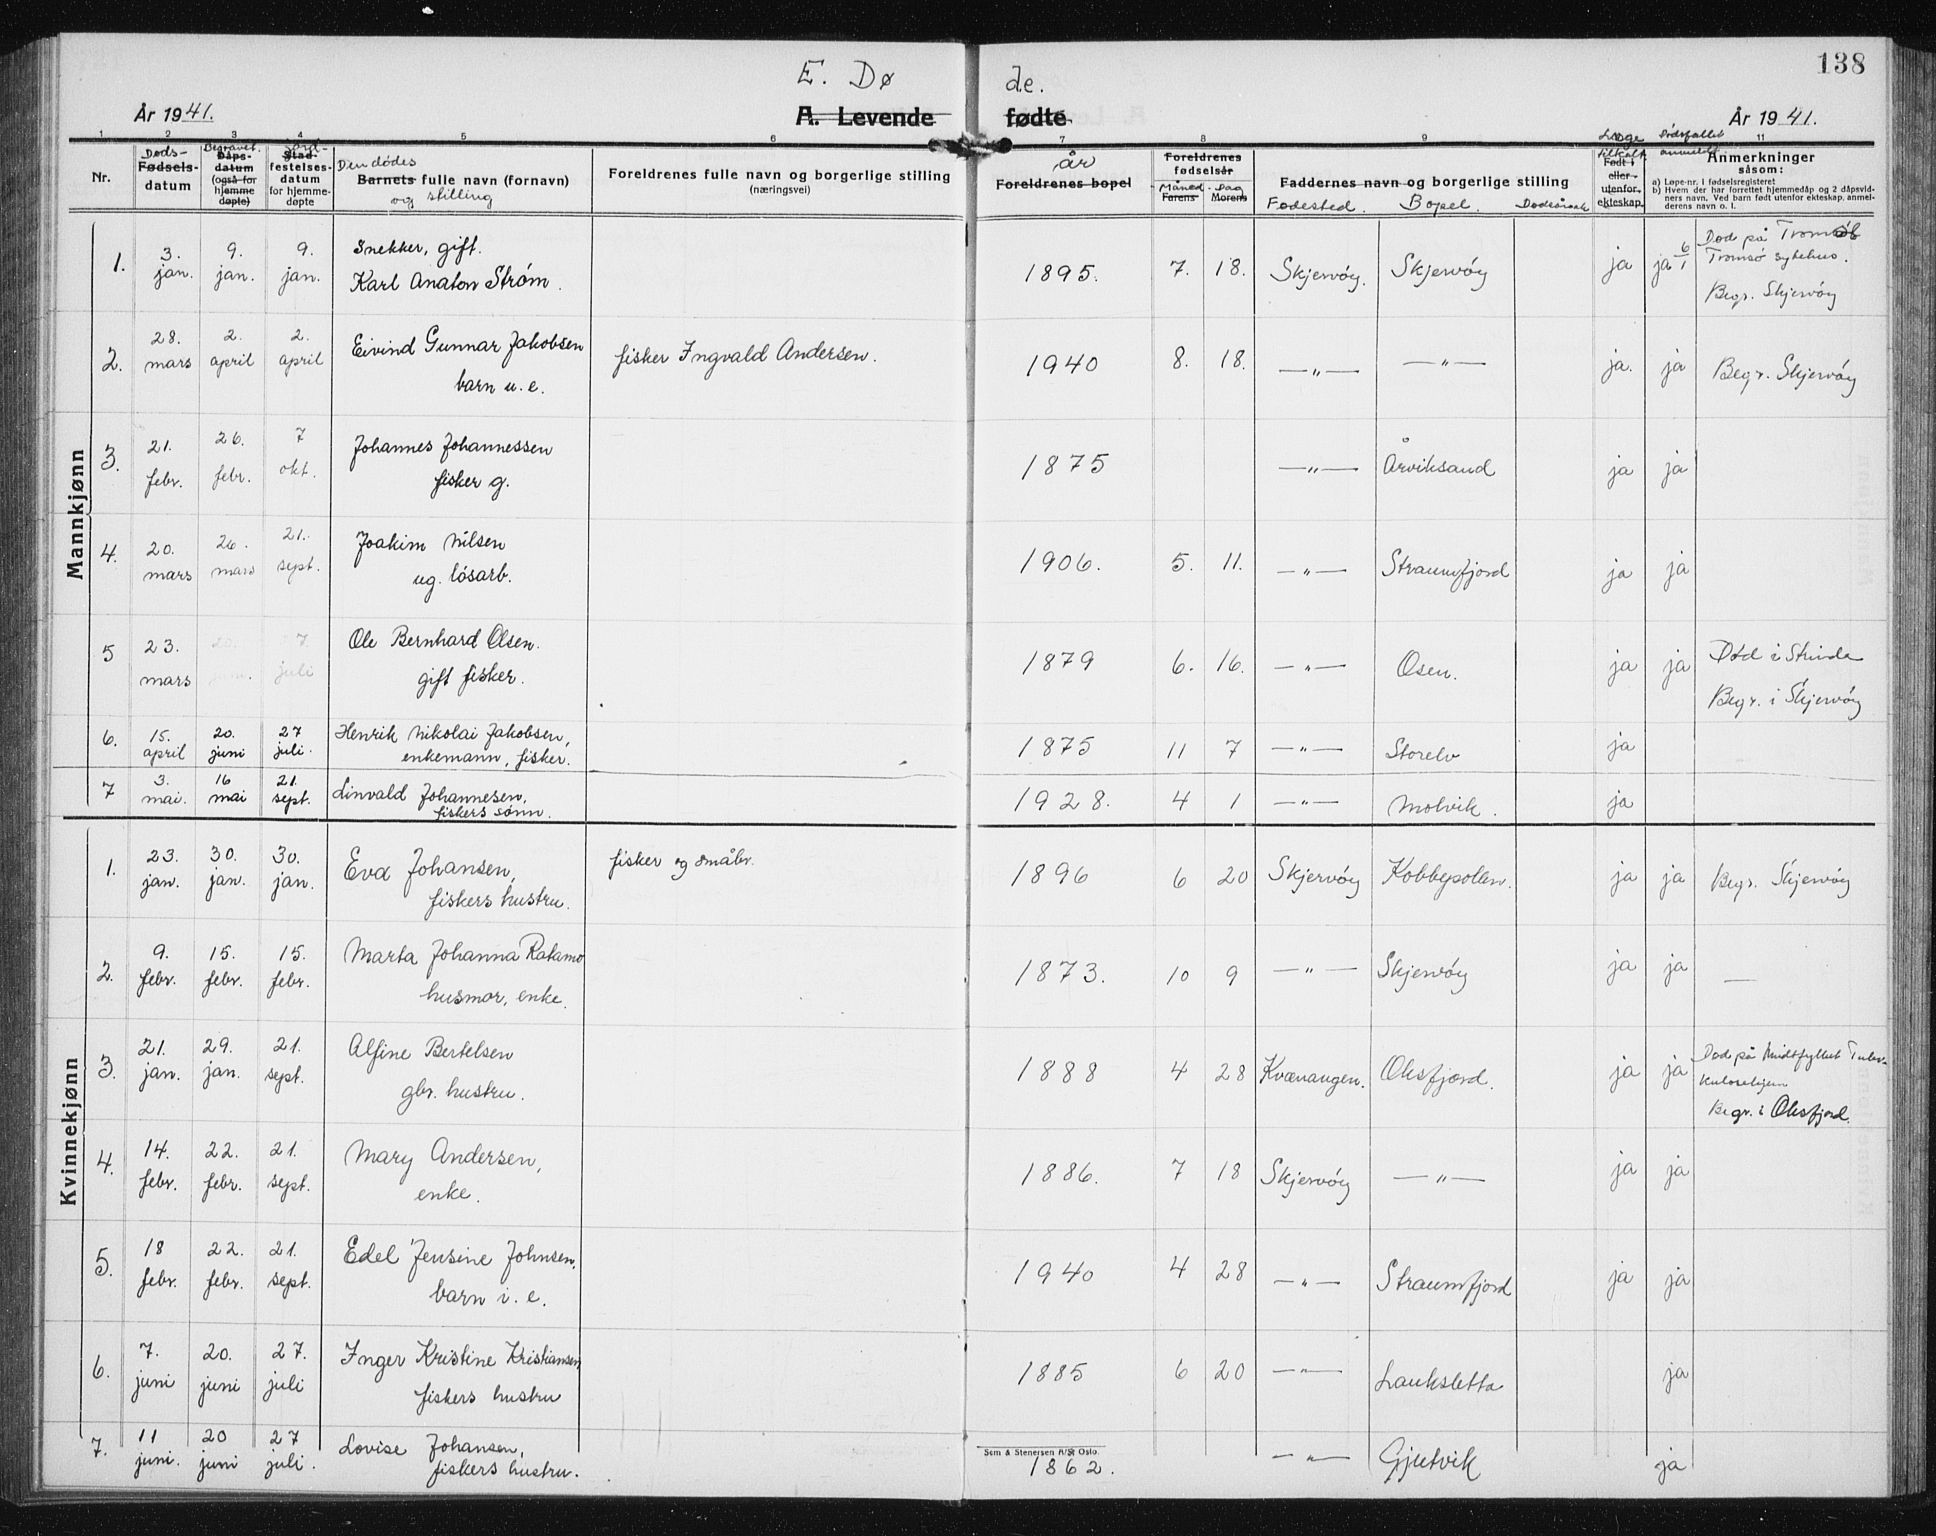 138
E. Døde.
År 1941.
A. Levende fødte
År 1941.
1 2 3 4 5 6 7 8 9 11
Nr.
Døds-
Fødsels-
datum
Begravet
Dåps-
datum
(også for
hjemme
døpte)
Jord-
Stad-
festelses-
datum
for hjemme-
døpte
Den dødes
Barnets fulle navn (fornavn)
og stilling
Foreldrenes fulle navn og borgerlige stilling
(næringsvei)
år
Foreldrenes bopel
Foreldrenes
fødselsår
Måned Dag
Farens Morens
Faddernes navn og borgerlige stilling
Fødested. Bopel. Dødsårsak
Læge
tilkalt
Født i
eller
utenfor
ekteskap
Dødsfallet
anmeldt
Anmerkninger
såsom:
a) Løpe-nr. i fødselsregisteret
b) Hvem der har forrettet hjemmedåp og 2 dåpsvid-
ners navn. Ved barn født utenfor ekteskap, anmel-
derens navn o. l.
Mannkjønn
1. 3. jan. 9. jan. 9. jan. Snekker, gift. Karl Anaton Strøm. 1895. 7. 18. Skjervöy. Skjervöy ja ja 6/1 Død på Tromsø sykehus. Begr. Skjervöy
2. 28. mars 2. april 2. april Eivind Gunnar Jakobsen barn u. e. fisker Ingvald Andersen. 1940 8. 18. —"— —"— ja. ja Begr. Skjervöy
3. 21. febr. 26. febr. 7 okt. Johannes Johannessen fisker g. 1875 —"— Årviksand ja ja
4. 20. mars 26. mars 21. sept. Joakim Nilsen ug. lösarb. 1906. 5. 11. —"— Straumfjord ja ja
5 23. mars 20. juni. 7 juli Ole Bernhard Olsen. gift fisker. 1879 6. 16. —"— Osen. ja ja Död i Strinda Begr. i Skjervöy
6. 15. april 20. juni 27 juli. Henrik Nikolai Jakobsen, enkemann, fisker. 1875 11 7 —"— Storelv ja
7 3. mai. 16 mai 21. sept. Linvald Johannesen, fiskers sönn. 1928. 4 1 —"— Molvik. ja
Kvinnekjønn
1. 23. jan. 30. jan. 30. jan. Eva Johansen, fiskers hustru. fisker og småbr. 1896 6 20 Skjervöy Kobbepollen. ja ja Begr. Skjervöy
2. 9. febr. 15. febr. 15. febr. Marta Johanna Ratamo husmor, enke. 1873. 10 9 —"— Skjervöy ja ja —
3. 21. jan. 29. jan. 21. sept. Alfine Bertelsen gbr. hustru. 1888 4 28 Kvænangen. Oksfjord. ja ja Død på Midtfyllet Tuber-kulosehjem Begr. i Oksfjord.
4. 14. febr. 22. febr. 21. sept. Mary Andersen, enke. 1886. 7 18 Skjervöy —"— ja ja
5. 18 febr. 22. febr. 21. sept. Edel Jensine Johnsen, barn i. e. 1940 4 28 —"— Straumfjord ja ja
6. 7. juni 20. juni 27. juli Inger Kristine Kristiansen fiskers hustru 1885 6 20 —"— Lauksletta ja
7. 11 juni. 20 juni 27 juli. Lovise Johansen, fiskers hustru. 1862. —"— Gjutvik ja
Sem & Stenersen A/S Oslo.